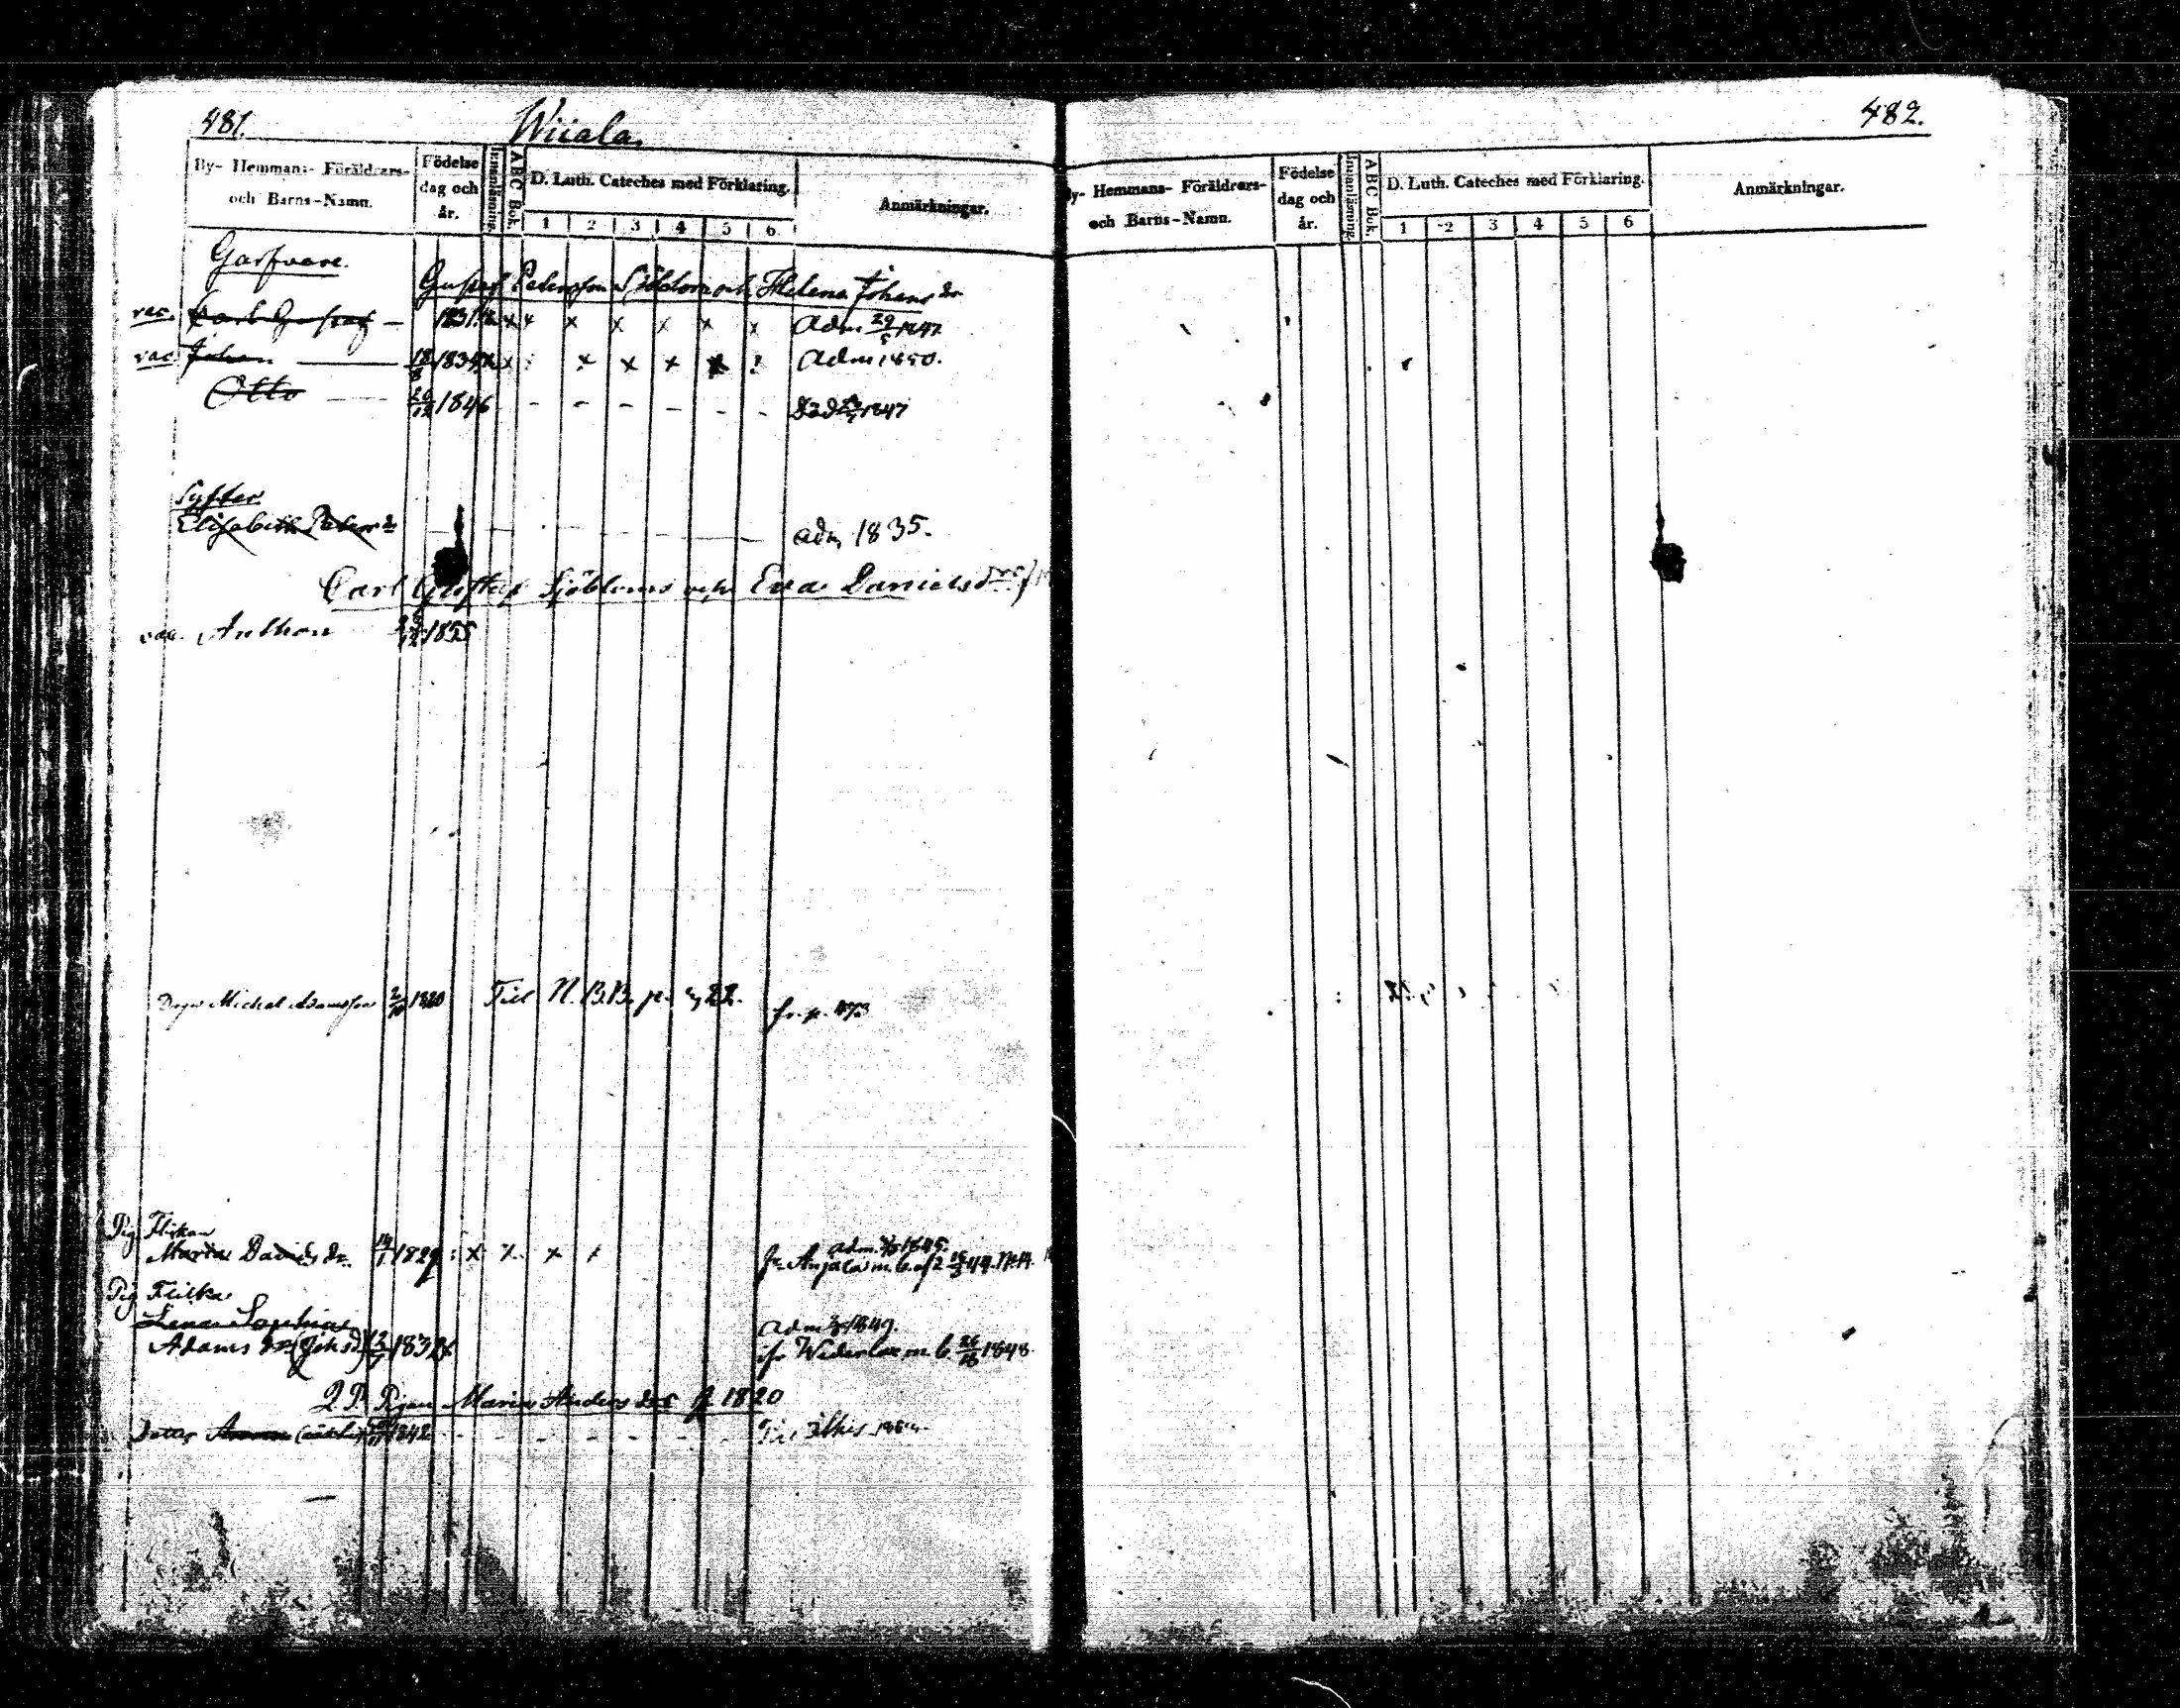 481.
Wiiala.
By- Hemmans- Föräldrars- och Barns-Namn.
Födelse dag och år.
Innanläsning.
ABC Bok.
D. Luth. Cateches med Förklaring.
1 2 3 4 5 6.
Anmärkningar.
Garfvare.
Gustaf Petersson Sjöblom och Helena Johans dr
vac. Carl Gustaf — 1831 x x x x x x x adm 29/5 1847
vac. Johan — 18/8 1834 x x x x x x adm 1850.
Otto — 26/12 1846 - - - - - - Död 1847
Syster
Elisabeth Peters dr — adm 1835.
Carl Gustaf Sjöbloms och Eva Daniels dr
vac. Anthon 1855
Michel Adamsson 2/10 1820 Till N. B.B. p. 22. fr. p.
Pig. Flickan
Maria Davids dr. 14/1 1829 : x x x adm. 1845.
fr. Anjala m. b. af 2 15/3 44. N:
Pig Flicka
Lena Sophia
Adams dr (Johs d) 1832 x adm 1849.
fr Wederlax m b 26/10 1848.
Q.P. Pigan Maria Anders dr f. 1820
Dotter Anna 1842 - - - - - - -
482.
By- Hemmans- Föräldrars- och Barns-Namn.
Födelse dag och år.
Innanläsning.
ABC Bok.
D. Luth. Cateches med Förklaring.
1 2 3 4 5 6
Anmärkningar.